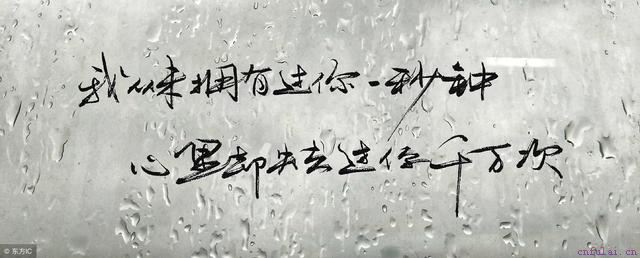 我从未拥有过你一秒钟
心里却失去过你千万次
© 东方IC
cnfulai.cn